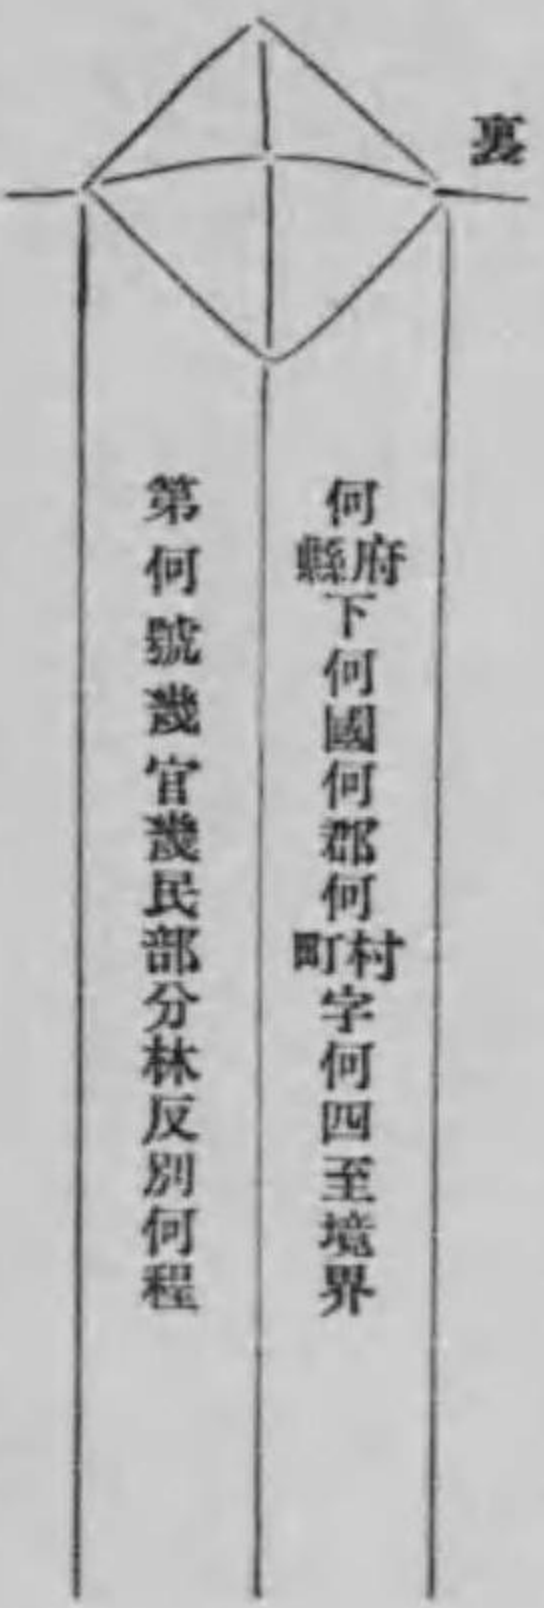 裏
何府縣下何國何郡何村町字何四至境界
第何號幾官幾民部分林反別何程